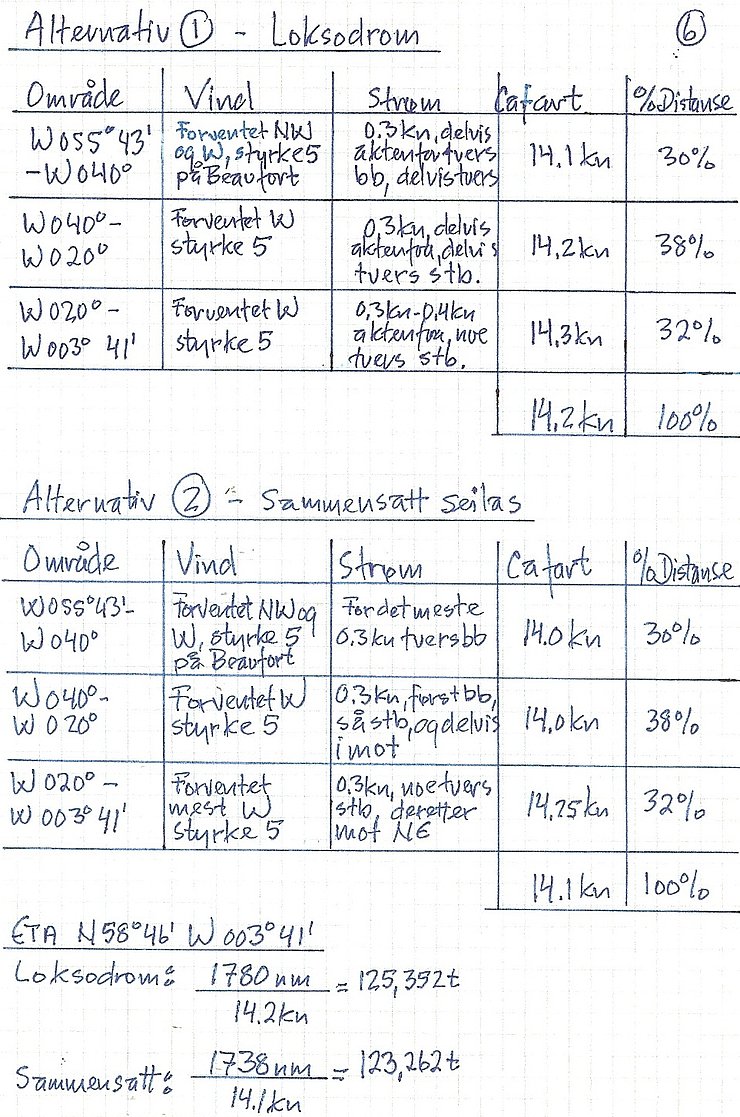 Alternativ ① - Loksodrom ⑥
Område Vind Strøm Ca fart % Distanse
W055°43' Forventet NW 0.3kn, delvis
-W040° og W, styrke 5 aktenfor tvers 14.1kn 30%
på Beaufort bb, delvis tvers
W040°- Forventet W 0.3kn, delvis
W020° styrke 5 aktenfra, delvis 14.2kn 38%
tvers stb.
W020°- Forventet W 0,3kn-0,4kn
W003° 41' styrke 5 aktenfra, noe 14.3kn 32%
tvers stb.
14.2kn 100%
Alternativ ② - Sammensatt seilas
Område Vind Strøm Ca fart % Distanse
W055°43'- Forventet NW og For det meste
W040° W, styrke 5 0.3kn tvers bb 14.0kn 30%
på Beaufort
W040°- Forventet W 0.3kn, først bb,
W020° styrke 5 så stb, og delvis 14.0kn 38%
imot
W020°- Forventet 0.3kn, noe tvers
W003°41' mest W stb, deretter 14.25kn 32%
styrke 5 mot NE
14.1kn 100%
ETA N58°46' W003°41'
Loksodrom: 1780nm = 125,352t
14.2kn
Sammensatt: 1738nm = 123,262t
14.1kn